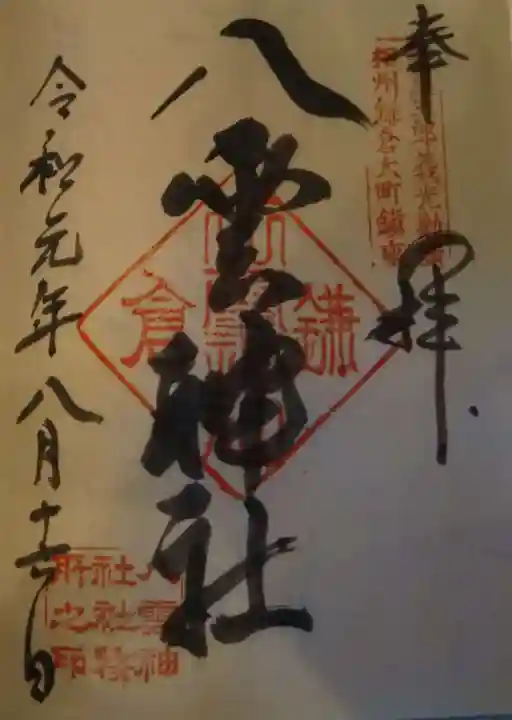 奉拝
相州鎌倉大町鎮座
八雲神社
鎌倉
八雲神
社社務
所之印
令和元年八月十六日